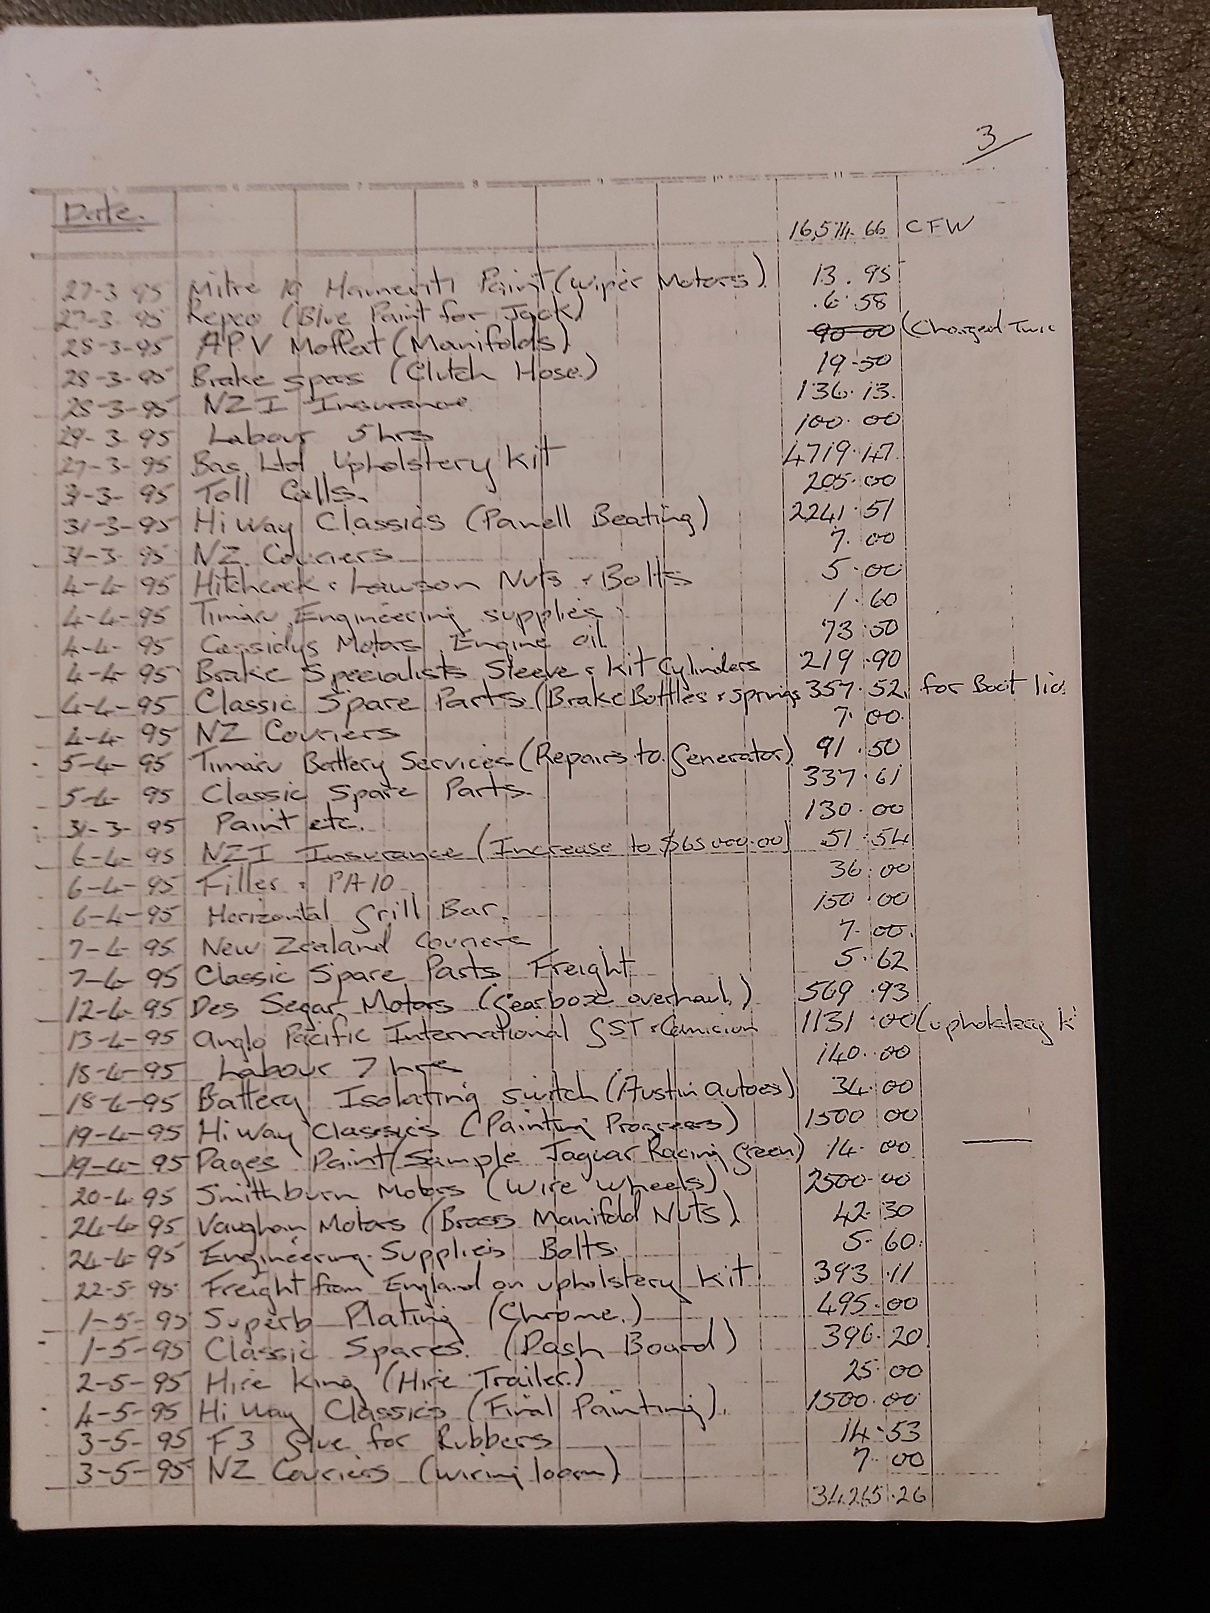 3
5 6 7 8 9 10 11
Date.
16,574.66 CFW
27-3 95 Mitre 10 Hamerith Paint (Wiper Motors) 13.95
27-3.95 Repco (Blue Paint for Jack) 6.58
28-3-95 APV Moffat (Manifolds) 90.00 (Charged Twic
28-3-95 Brake spec (Clutch Hose.) 19.50
28-3-95 NZI Insurance 136.13
29-3.95 Labour 5 hrs 100.00
27-3-95 Bas Ltd Upholstery Kit 4719.47
31-3-95 Toll Calls. 205.00
31-3-95 Hi Way Classics (Panell Beating) 2241.51
31-3.95 NZ Couriers 7.00
4-4-95 Hitchcock & Lawson Nuts & Bolts 5.00
4-4-95 Timaru Engineering supplies 1.60
4-4-95 Cassidys Motors Engine oil 73.50
4-4-95 Brake Specialists Sleeve & Kit Cylinders 219.90
4-4-95 Classic Spare Parts (Brake Bottles & springs 357.52 for Boot lid
4-4-95 NZ Couriers 7.00
5-4-95 Timaru Battery Services (Repairs to Generator) 91.50
5-4-95 Classic Spare Parts. 337.61
31-3-95 Paint etc. 130.00
6-4-95 NZI Insurance (Increase to $65000.00) 51.54
6-4-95 Filler & PA10 36.00
6-4-95 Horizontal Grill Bar. 150.00
7-4-95 New Zealand Couriers 7.00
7-4-95 Classic Spare Parts Freight 5.62
12-4-95 Des Segar Motors (Gearbox overhaul) 569.93
13-4-95 Anglo Pacific International GST & Comicion 1131.00 (upholstery K
18-4-95 Labour 7 hrs 140.00
18-4-95 Battery Isolating switch (Austin autoes) 34.00
19-4-95 Hi Way Classics (Painting Progress) 1500 00
19-4-95 Pages Paint (Sample Jaguar Racing Green) 14.00
20-4.95 Smithburn Motors (Wire wheels) 2500.00
24-4-95 Vaughan Motors (Brass Manifold Nuts) 42.30
24-4-95 Engineering Supplies Bolts. 5-60
22-5-95 Freight from England on upholstery Kit 393.11
1-5-95 Superb Plating (Chrome.) 495.00
1-5-95 Classic Spares. (Dash Board) 396.20
2-5-95 Hire King (Hire Trailer.) 25.00
4-5-95 Hi Way Classics (Final Painting). 1500.00
3-5-95 F3 Glue for Rubbers 14.53
3-5-95 NZ Couriers (wiring loom) 7.00
34,265.26